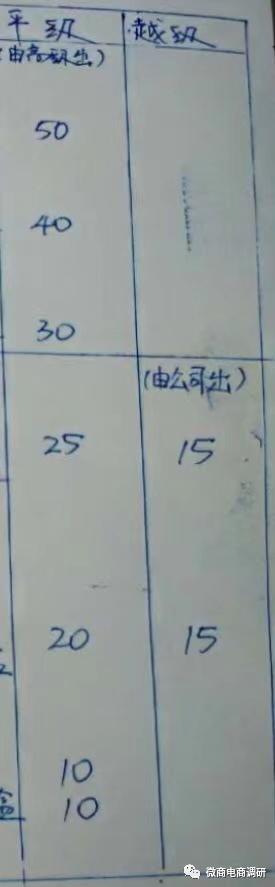 平级 越级
(由高级出)
50
40
30
(由公司出)
25 15
20 15
10
10
微商电商调研